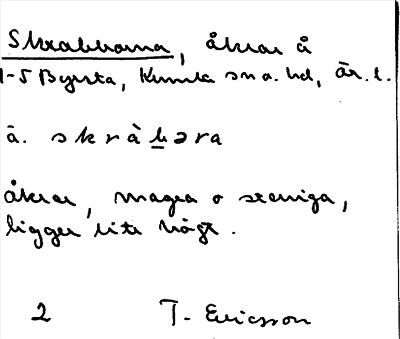 Skrabborna, åkrar å
1-5 Byrsta, Kumla sn o. hd, Ör. l.
ä. skràbəra
åkrar, magra o steniga,
ligger lite högt.
2 T. Ericsson